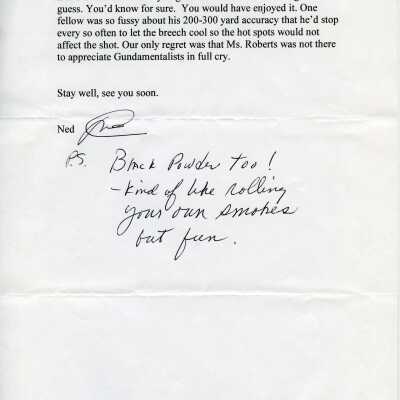 guess. You'd know for sure. You would have enjoyed it. One
fellow was so fussy about his 200-300 yard accuracy that he'd stop
every so often to let the breech cool so the hot spots would not
affect the shot. Our only regret was that Ms. Roberts was not there
to appreciate Gundamentalists in full cry.
Stay well, see you soon.
Ned
P.S. Black Powder too!
-kind of like rolling
your own smokes
but fun.